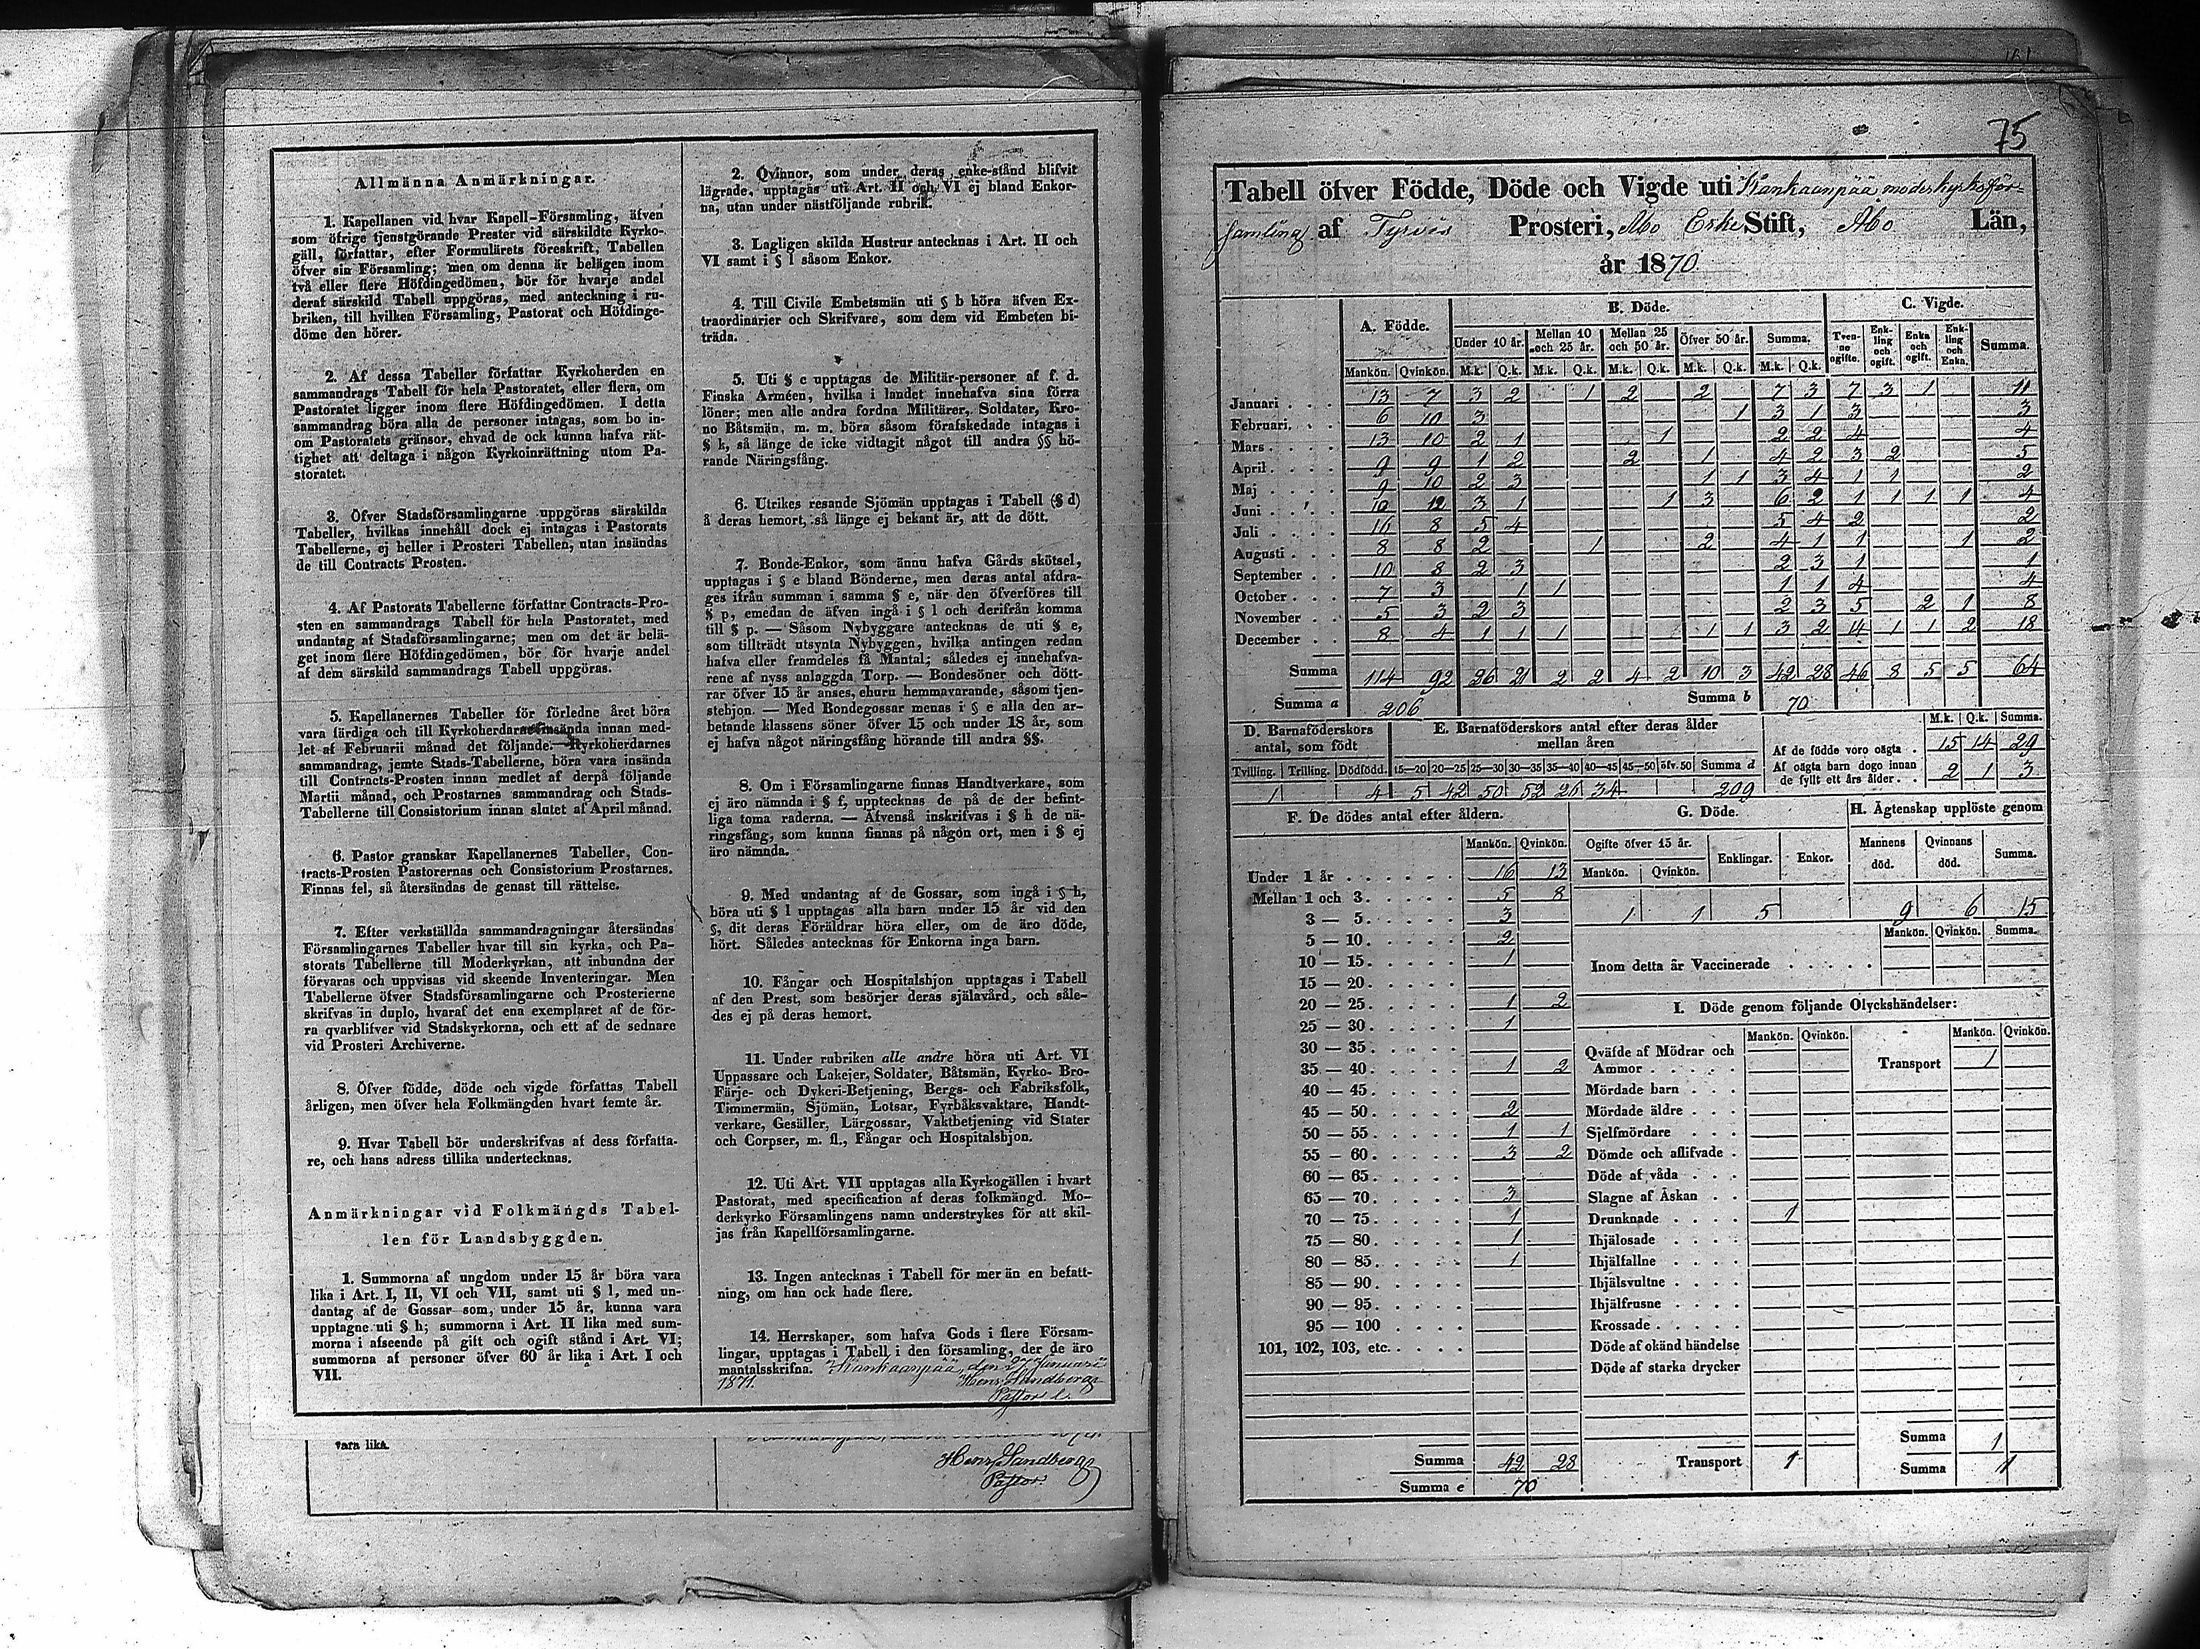 Allmänna Anmärkningar.
1. Kapellanen vid hvar Kapell-Församling, äfven
som öfrige tjenstgörande Prester vid särskildte Kyrko-
gäll, författar, efter Formulärets föreskrift, Tabellen
öfver sin Församling; men om denna är belägen inom
två eller flere Höfdingedömen, bör för hvarje andel
deraf särskild Tabell uppgöras, med anteckning i ru-
briken, till hvilken Församling, Pastorat och Höfdinge-
döme den hörer.
2. Af dessa Tabeller författar Kyrkoherden en
sammandrags Tabell för hela Pastoratet, eller flera, om
Pastoratet ligger inom flere Höfdingedömen. I detta
sammandrag böra alla de personer intagas, som bo in-
om Pastoratets gränsor, ehvad de ock kunna hafva rät-
tighet att deltaga i någon Kyrkoinrättning utom Pa-
storatet.
3. Öfver Stadsförsamlingarne uppgöras särskilda
Tabeller, hvilkas innehåll dock ej intagas i Pastorats
Tabellerne, ej heller i Prosteri Tabellen, utan insändas
de till Contracts Prosten.
4. Af Pastorats Tabellerne författar Contracts-Pro-
sten en sammandrags Tabell för hela Pastoratet, med
undantag af Stadsförsamlingarne; men om det är belä-
get inom flere Höfdingedömen, bör för hvarje andel
af dem särskild sammandrags Tabell uppgöras.
5. Kapellanernes Tabeller för förledne året böra
vara färdiga och till Kyrkoherdarne insända innan med-
let af Februarii månad det följande. Kyrkoherdarnes
sammandrag, jemte Stads-Tabellerne, böra vara insända
till Contracts-Prosten innan medlet af derpå följande
Martii månad, och Prostarnes sammandrag och Stads-
Tabellerne till Consistorium innan slutet af April månad.
6. Pastor granskar Kapellanernes Tabeller, Con-
tracts-Prosten Pastorernas och Consistorium Prostarnes.
Finnas fel, så återsändas de genast till rättelse.
7. Efter verkställda sammandragningar återsändas
Församlingarnes Tabeller hvar till sin kyrka, och Pa-
storats Tabellerne till Moderkyrkan, att inbundna der
förvaras och uppvisas vid skeende Inventeringar. Men
Tabellerne öfver Stadsförsamlingarne och Prosterierne
skrifvas in duplo, hvaraf det ena exemplaret af de för-
ra qvarblifver vid Stadskyrkorna, och ett af de sednare
vid Prosteri Archiverne.
8. Öfver födde, döde och vigde författas Tabell
årligen, men öfver hela Folkmängden hvart femte år.
9. Hvar Tabell bör underskrifvas af dess författa-
re, och hans adress tillika undertecknas.
Anmärkningar vid Folkmängds Tabel-
len för Landsbyggden.
1. Summorna af ungdom under 15 år böra vara
lika i Art. I, II, VI och VII, samt uti § l, med un-
dantag af de Gossar som, under 15 år, kunna vara
upptagne uti § h; summorna i Art. II lika med sum-
morna i afseende på gift och ogift stånd i Art. VI;
summorna af personer öfver 60 år lika i Art. I och
VII.
2. Qvinnor, som under deras enke-stånd blifvit
lägrade, upptagas uti Art. II och VI ej bland Enkor-
na, utan under nästföljande rubrik.
3. Lagligen skilda Hustrur antecknas i Art. II och
VI samt i § l såsom Enkor.
4. Till Civile Embetsmän uti § b höra äfven Ex-
traordinarier och Skrifvare, som dem vid Embeten bi-
träda.
5. Uti § c upptagas de Militär-personer af f. d.
Finska Arméen, hvilka i landet innehafva sina förra
löner; men alle andra fordna Militärer, Soldater, Kro-
no Båtsmän, m. m. böra såsom förafskedade intagas i
§ k, så länge de icke vidtagit något till andra §§ hö-
rande Näringsfång.
6. Utrikes resande Sjömän upptagas i Tabell (§ d)
å deras hemort, så länge ej bekant är, att de dött.
7. Bonde-Enkor, som ännu hafva Gårds skötsel,
upptagas i § e bland Bönderne, men deras antal afdra-
ges ifrån summan i samma § e, när den öfverföres till
§ p, emedan de äfven ingå i § l och derifrån komma
till § p. — Såsom Nybyggare antecknas de uti § e,
som tillträdt utsynta Nybyggen, hvilka antingen redan
hafva eller framdeles få Mantal; således ej innehafva-
rene af nyss anlaggda Torp. — Bondesöner och dött-
rar öfver 15 år anses, ehuru hemmavarande, såsom tjen-
stehjon. — Med Bondegossar menas i § e alla den ar-
betande klassens söner öfver 15 och under 18 år, som
ej hafva något näringsfång hörande till andra §§.
8. Om i Församlingarne finnas Handtverkare, som
ej äro nämnda i § f, upptecknas de på de der befint-
liga toma raderna. — Äfvenså inskrifvas i § h de nä-
ringsfång, som kunna finnas på någon ort, men i § ej
äro nämnda.
9. Med undantag af de Gossar, som ingå i § h,
böra uti § l upptagas alla barn under 15 år vid den
§, dit deras Föräldrar höra eller, om de äro döde,
hört. Således antecknas för Enkorna inga barn.
10. Fångar och Hospitalshjon upptagas i Tabell
af den Prest, som besörjer deras själavård, och såle-
des ej på deras hemort.
11. Under rubriken alle andre höra uti Art. VI
Uppassare och Lakejer, Soldater, Båtsmän, Kyrko- Bro-
Färje- och Dykeri-Betjening, Bergs- och Fabriksfolk,
Timmermän, Sjömän, Lotsar, Fyrbåksvaktare, Handt-
verkare, Gesäller, Lärgossar, Vaktbetjening vid Stater
och Corpser, m. fl., Fångar och Hospitalshjon.
12. Uti Art. VII upptagas alla Kyrkogällen i hvart
Pastorat, med specification af deras folkmängd. Mo-
derkyrko Församlingens namn understrykes för att skil-
jas från Kapellförsamlingarne.
13. Ingen antecknas i Tabell för mer än en befatt-
ning, om han ock hade flere.
14. Herrskaper, som hafva Gods i flere Försam-
lingar, upptagas i Tabell i den församling, der de äro
mantalsskrifna. Kankaanpää, den 27 Januari
1871. Henr. Sandberg
Pastor l.
vara lika.
Henr. Sandberg
Pastor
75
Tabell öfver Födde, Döde och Vigde uti Kankaanpää moderkyrkoför-
samling af Tyrvis Prosteri, Åbo Erke Stift, Åbo Län,
år 1870.
A. Födde. B. Döde. C. Vigde.
Under 10 år. Mellan 10 och 25 år. Mellan 25 och 50 år. Öfver 50 år. Summa. Tven-ne ogifte. Enk-ling och ogift. Enka och ogift. Enk-ling och Enka. Summa.
Mankön. Qvinkön. M.k. Q.k. M.k. Q.k. M.k. Q.k. M.k. Q.k. M.k. Q.k.
Januari . . . 13 7 3 2 1 2 2 7 3 7 3 1 11
Februari. . . 6 10 3 1 3 1 3 3
Mars . . . . 13 10 2 1 1 2 2 4 4
April . . . . 9 9 1 2 2 1 4 2 3 2 5
Maj . . . . 9 10 2 3 1 1 3 4 1 1 2
Juni . . . . 10 12 3 1 1 3 6 2 1 1 1 1 4
Juli . . . . 16 8 5 4 5 4 2 2
Augusti . . . 8 8 2 1 2 4 1 1 1 2
September . . 10 8 2 3 2 3 1 1
October . . . 7 3 1 1 1 1 4 4
November . . 5 3 2 3 2 3 5 2 1 8
December . . 8 4 1 1 1 1 1 3 2 14 1 1 2 18
Summa 114 92 26 21 2 2 4 2 10 3 42 28 46 8 5 5 64
Summa a 206 Summa b 70
D. Barnaföderskors antal, som födt
Tvilling. Trilling. Dödfödd.
1 4
E. Barnaföderskors antal efter deras ålder mellan åren
15—20 20—25 25—30 30—35 35—40 40—45 45—50 öfv. 50 Summa d
5 42 50 52 26 34 209
M.k. Q.k. Summa.
Af de födde voro oägta . 15 14 29
Af oägta barn dogo innan
de fyllt ett års ålder . . 2 1 3
F. De dödes antal efter åldern.
Mankön. Qvinkön.
Under 1 år . . . . . . 16 13
Mellan 1 och 3. . . . . 5 8
3 — 5. . . . . 3
5 — 10. . . . . 2
10 — 15. . . . . 1
15 — 20. . . . .
20 — 25. . . . . 1 2
25 — 30. . . . . 1
30 — 35. . . . .
35 — 40. . . . . 1 2
40 — 45. . . . .
45 — 50. . . . . 2
50 — 55. . . . . 1 1
55 — 60. . . . . 3 2
60 — 65. . . . .
65 — 70. . . . . 3
70 — 75. . . . . 1
75 — 80. . . . . 1
80 — 85. . . . . 1
85 — 90. . . . .
90 — 95. . . . .
95 — 100 . . . .
101, 102, 103, etc. . . . .
Summa 42 28
Summa e 70
G. Döde.
Ogifte öfver 15 år. Enklingar. Enkor.
Mankön. Qvinkön.
1 1 5
H. Ägtenskap upplöste genom
Mannens död. Qvinnans död. Summa.
9 6 15
Mankön. Qvinkön. Summa.
Inom detta år Vaccinerade . . . . .
I. Döde genom följande Olyckshändelser:
Mankön. Qvinkön. Mankön. Qvinkön.
Qväfde af Mödrar och
Ammor . . . . . Transport 1
Mördade barn . . .
Mördade äldre . . .
Sjelfmördare . . .
Dömde och aflifvade .
Döde af våda . . .
Slagne af Åskan . .
Drunknade . . . . 1
Ihjälosade . . . .
Ihjälfallne . . . .
Ihjälsvultne . . . .
Ihjälfrusne . . . .
Krossade . . . . .
Döde af okänd händelse
Döde af starka drycker
Summa 1
Transport 1 Summa 1